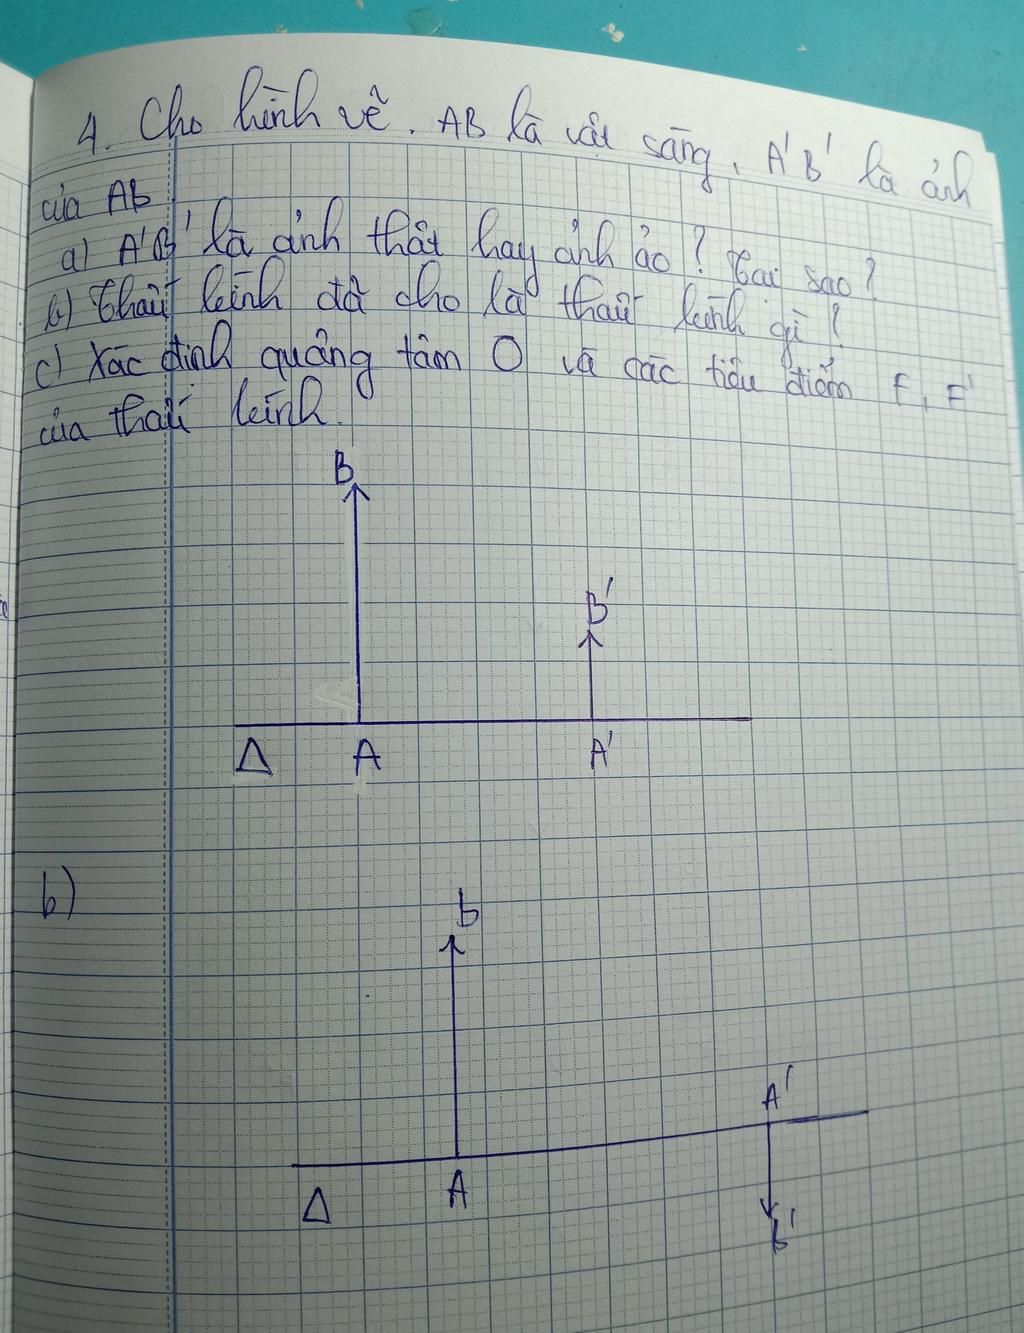 4. Cho hình vẽ. AB là vật sáng, A'B' là ảnh
của AB
a) A'B' là ảnh thật hay ảnh ảo? Tại sao?
b) Thấu kính đã cho là thấu kính gì?
c) Xác định quang tâm O và các tiêu điểm F, F'
của thấu kính.
B
B'
Δ A A'
b)
b
A'
Δ A
B'